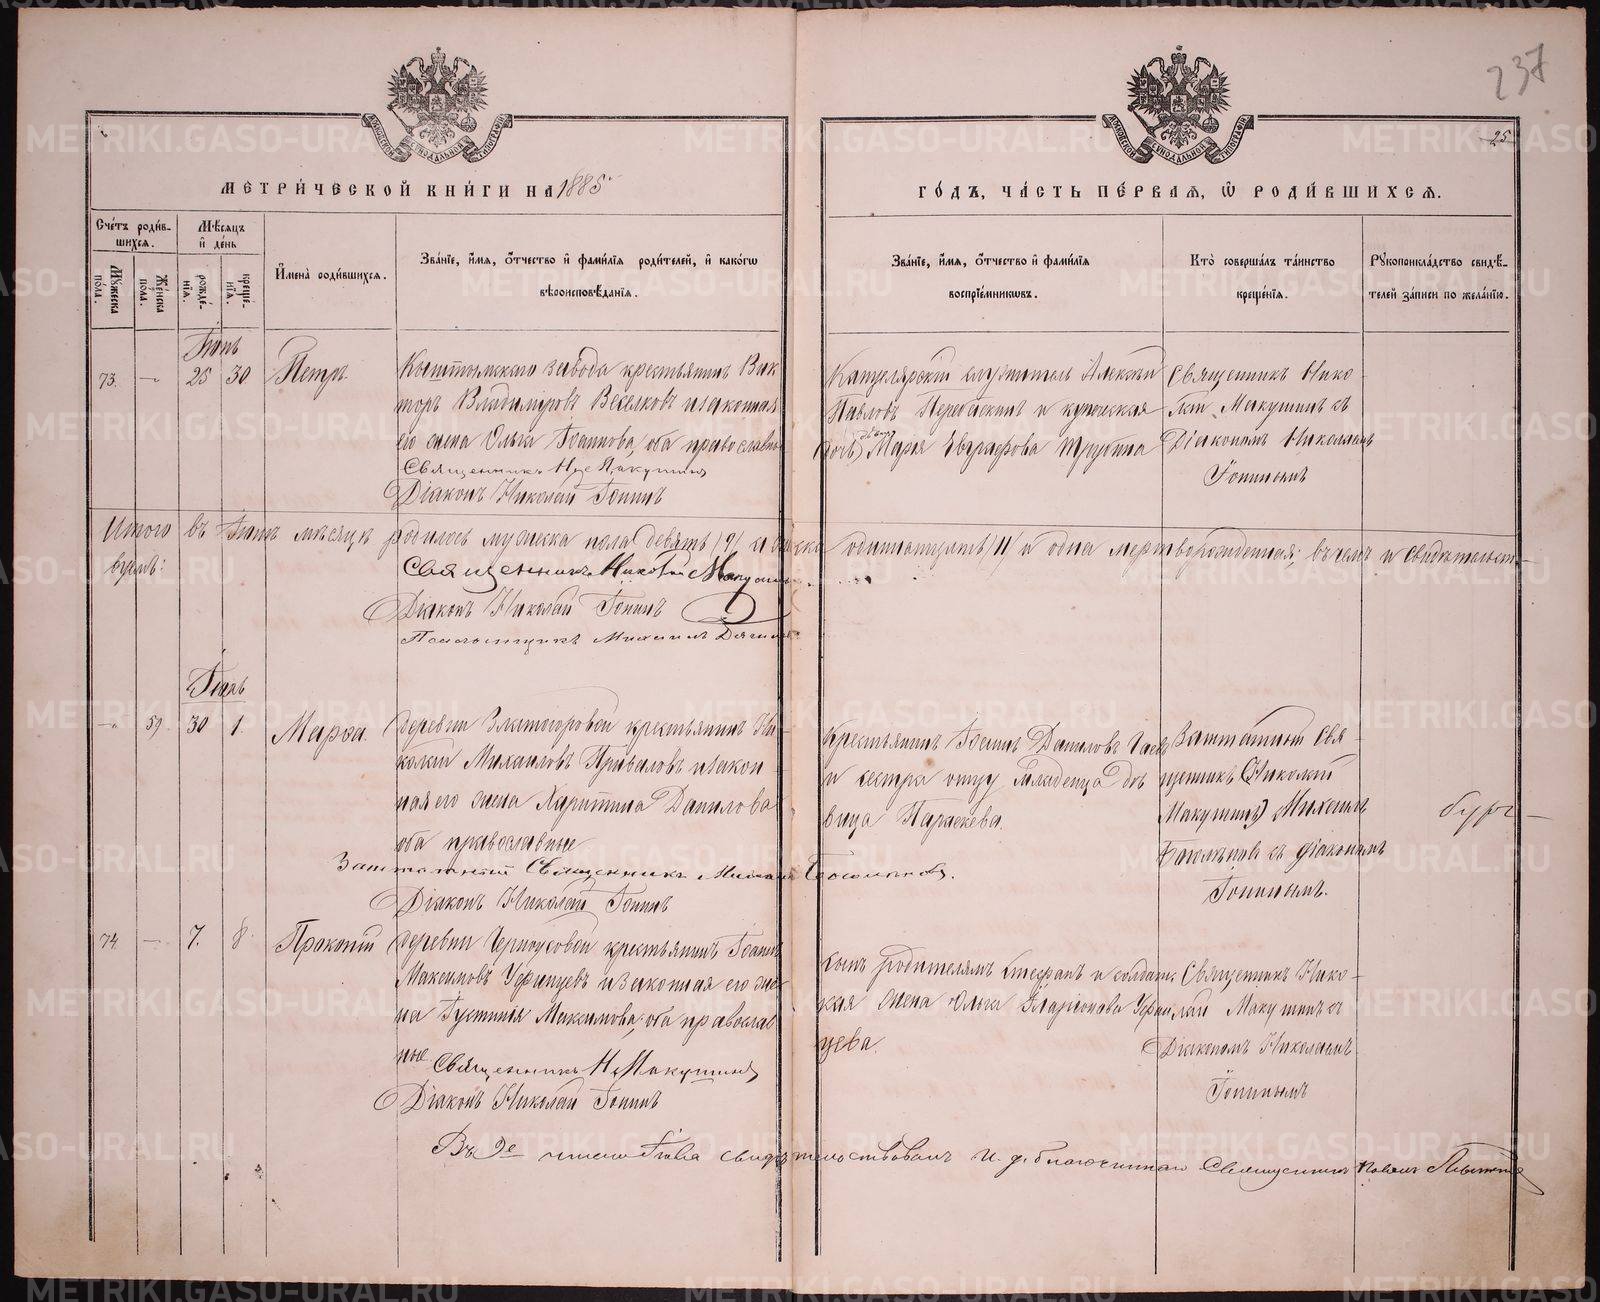 237
25
МОСКОВСКОЙ СѴНОДАЛЬНОЙ ТИПОГРАФІИ
МОСКОВСКОЙ СѴНОДАЛЬНОЙ ТИПОГРАФІИ
МЕТРИЧЕСКОЙ КНИГИ НА 1885
ГОДЪ, ЧАСТЬ ПЕРВАЯ, Ѡ РОДИВШИХСЯ.
Счетъ родив-
шихся.
Мужеска пола.
Женска пола.
Мѣсяцъ
и день
рожде-
нія.
креще-
нія.
Имена родившихся.
Званіе, имя, отчество и фамилія родителей, и какогѡ
вѣроисповѣданія.
Званіе, имя, отчество и фамилія
воспріемниковъ.
Кто совершалъ таинство
крещенія.
Рукоприкладство свидѣ-
телей записи по желанію.
Іюнь
73. — 25 30. Петръ.
Кыштымскаго завода крестьянинъ Вик
торъ Владимировъ Веселковъ и законная
его жена Ольга Іоаннова, оба православные
Священникъ Н. Макушинъ
Діаконъ Николай Іонинъ
Канцелярскій служитель Алексѣй
Павловъ и купеческая
дочь Марія Евграфова Трубина
Священникъ Нико-
лай Макушинъ съ
Діакономъ Николаемъ
Іонинымъ
Итого въ Іюнѣ мѣсяцѣ родилось мужеска пола девять /9/ и женска одиннадцать /11/ и одна мертворожденная; въ чемъ и свидѣтельст-
вуемъ:
Священникъ Николай Макушинъ
Діаконъ Николай Іонинъ
Псаломщикъ Михаилъ
Іюль
— 59. 30 1. Марѳа.
деревни Златогоровой крестьянинъ Ни-
колай Михаиловъ Приваловъ и закон-
ная его жена Харитина Данилова
оба православные
Заштатный Священникъ Михаилъ
Діаконъ Николай Іонинъ
Крестьянинъ Іоаннъ Даниловъ
и сестра отцу младенца дѣ
вица Параскева.
Заштатный Свя-
щенникъ (Николай
Макушинъ) Михаилъ
съ діакономъ
Іонинымъ.
74. — 7. 8. Прокопій
деревни Черноусовой крестьянинъ Іоаннъ
Максимовъ и законная его же-
на Іустинія Максимова, оба православ
ные.
Священникъ Н. Макушинъ
Діаконъ Николай Іонинъ
сынъ родителямъ Стефанъ и солдатс
кая жена Ольга Иларіонова
цева.
Священникъ Нико-
лай Макушинъ съ
Діакономъ Николаемъ
Іонинымъ
Въ 9е число Іюля свидѣтельствовалъ И. д. благочиннаго Священникъ Павелъ
METRIKI.GASO-URAL.RU